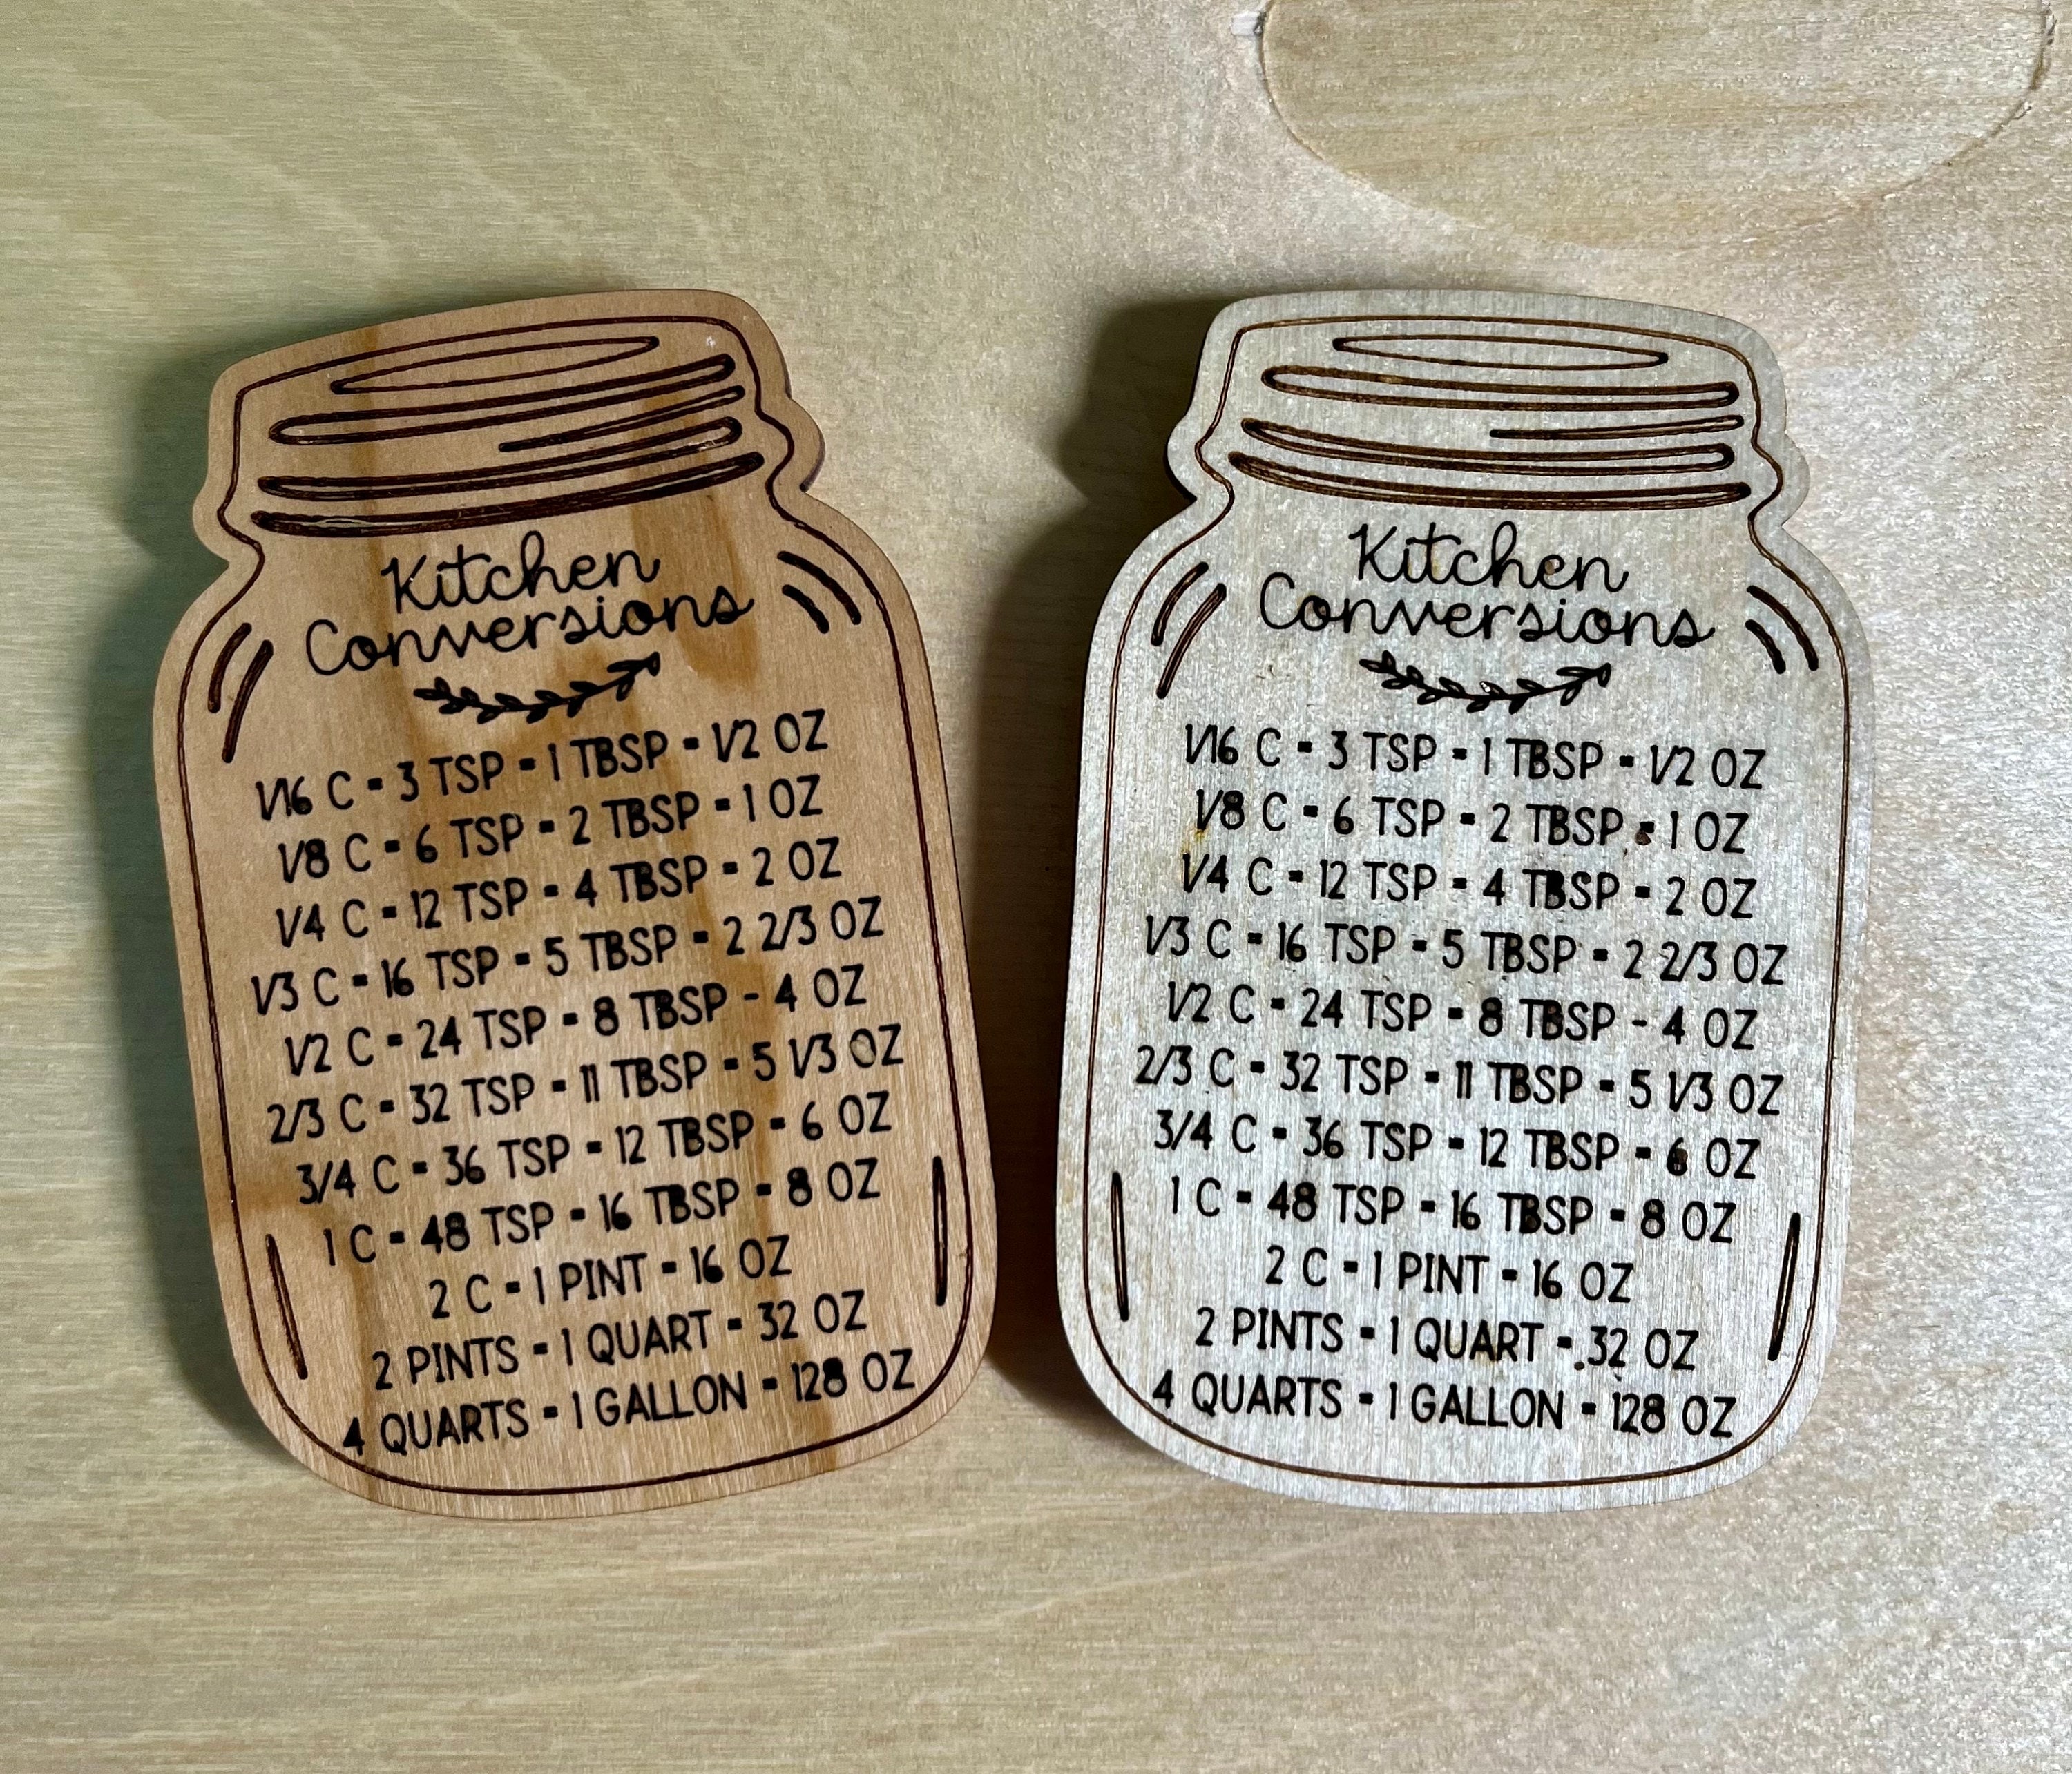 Kitchen
Conversions
1/16 C = 3 TSP = 1 TBSP = 1/2 OZ
1/8 C = 6 TSP = 2 TBSP = 1 OZ
1/4 C = 12 TSP = 4 TBSP = 2 OZ
1/3 C = 16 TSP = 5 TBSP = 2 2/3 OZ
1/2 C = 24 TSP = 8 TBSP - 4 OZ
2/3 C = 32 TSP = 11 TBSP = 5 1/3 OZ
3/4 C = 36 TSP = 12 TBSP = 6 OZ
1 C = 48 TSP = 16 TBSP = 8 OZ
2 C = 1 PINT = 16 OZ
2 PINTS = 1 QUART = 32 OZ
4 QUARTS = 1 GALLON = 128 OZ
Kitchen
Conversions
1/16 C = 3 TSP = 1 TBSP = 1/2 OZ
1/8 C = 6 TSP = 2 TBSP = 1 OZ
1/4 C = 12 TSP = 4 TBSP = 2 OZ
1/3 C = 16 TSP = 5 TBSP = 2 2/3 OZ
1/2 C = 24 TSP = 8 TBSP - 4 OZ
2/3 C = 32 TSP = 11 TBSP = 5 1/3 OZ
3/4 C = 36 TSP = 12 TBSP = 6 OZ
1 C = 48 TSP = 16 TBSP = 8 OZ
2 C = 1 PINT = 16 OZ
2 PINTS = 1 QUART = 32 OZ
4 QUARTS = 1 GALLON = 128 OZ